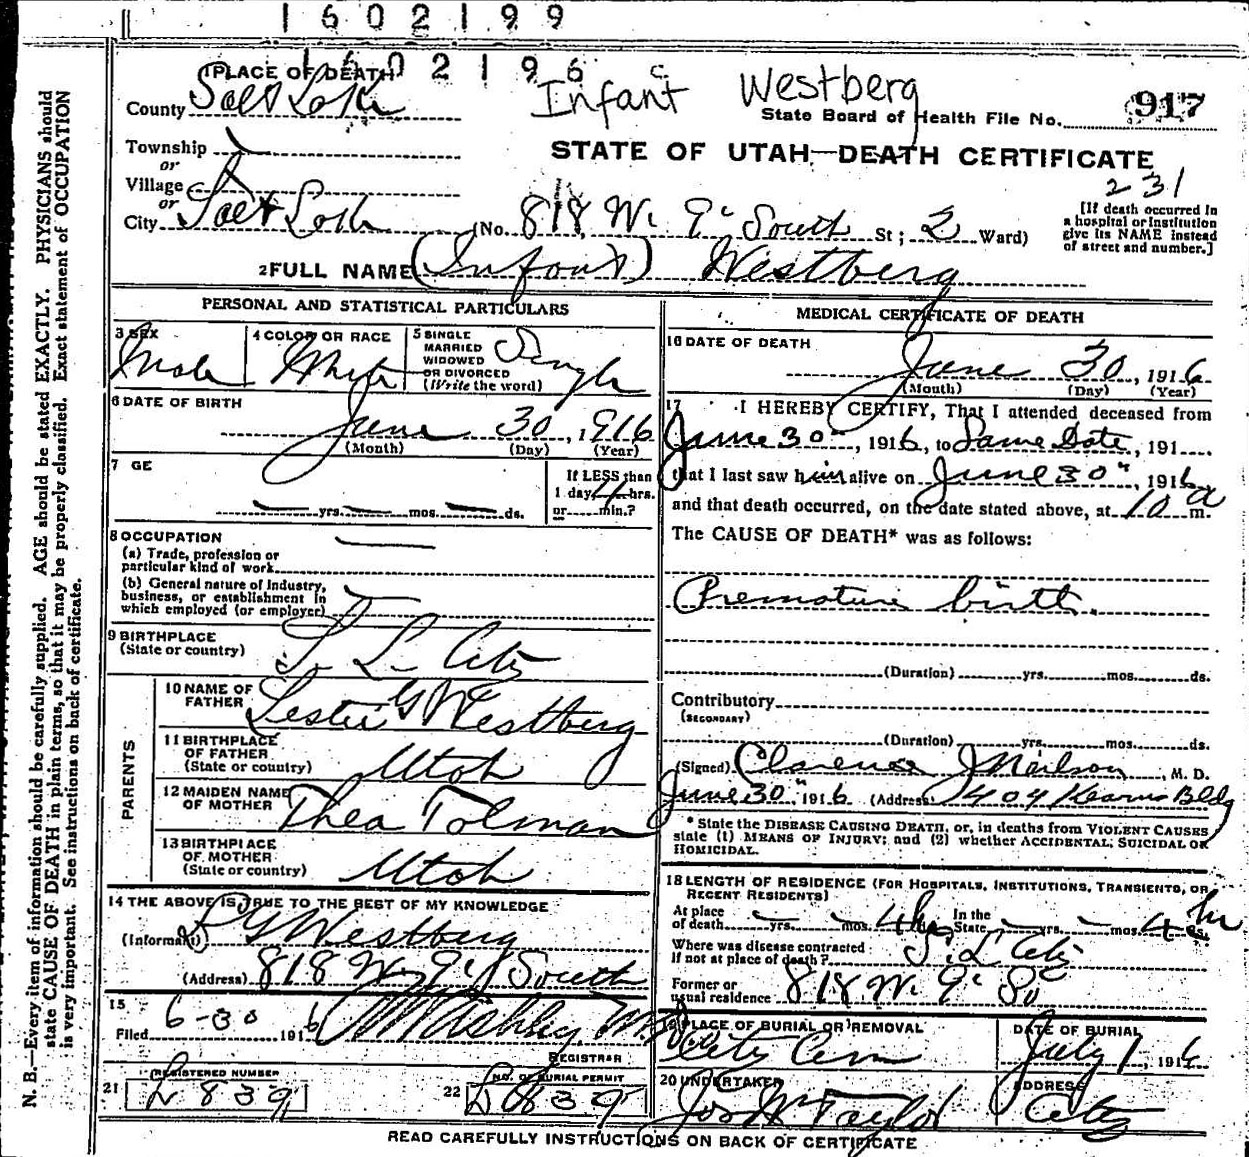 1602199
1602196
Infant Westberg
1 PLACE OF DEATH
County Salt Lake
State Board of Health File No. 917
Township
or
Village
or
City Salt Lake
STATE OF UTAH—DEATH CERTIFICATE
231
(No. 818 W. 9" South St; 2 Ward)
[If death occurred in
a hospital or institution
give its NAME instead
of street and number.]
2 FULL NAME (Infant) Westberg
PERSONAL AND STATISTICAL PARTICULARS
3 SEX Male
4 COLOR OR RACE White
5 SINGLE
MARRIED
WIDOWED
OR DIVORCED
(Write the word) Single
6 DATE OF BIRTH
June 30, 1916
(Month) (Day) (Year)
7 GE
yrs. mos. ds.
If LESS than
1 day 4 hrs.
or min.?
8 OCCUPATION
(a) Trade, profession or
particular kind of work
(b) General nature of industry,
business, or establishment in
which employed (or employer)
9 BIRTHPLACE
(State or country) S. L. City
PARENTS
10 NAME OF
FATHER Lester G Westberg
11 BIRTHPLACE
OF FATHER
(State or country) Utah
12 MAIDEN NAME
OF MOTHER Thea Tolman
13 BIRTHPLACE
OF MOTHER
(State or country) Utah
14 THE ABOVE IS TRUE TO THE BEST OF MY KNOWLEDGE
(Informant) L G Westberg
(Address) 818 W 9" South
15
Filed 6-30 1916
REGISTRAR
REGISTERED NUMBER
21 L 839
NO. OF BURIAL PERMIT
22 L 839
MEDICAL CERTIFICATE OF DEATH
16 DATE OF DEATH
June 30, 1916
(Month) (Day) (Year)
17 I HEREBY CERTIFY, That I attended deceased from
June 30", 1916, to Same Date, 191
that I last saw him alive on June 30", 1916
and that death occurred, on the date stated above, at 10 a m.
The CAUSE OF DEATH* was as follows:
Premature birth.
(Duration) yrs. mos. ds.
Contributory
(SECONDARY)
(Duration) yrs. mos. ds.
(Signed) Clarence J Neilson, M. D.
June 30", 1916 (Address) 404 Kearns Bldg
* State the DISEASE CAUSING DEATH, or, in deaths from VIOLENT CAUSES
state (1) MEANS OF INJURY; and (2) whether ACCIDENTAL, SUICIDAL OR
HOMICIDAL.
18 LENGTH OF RESIDENCE (FOR HOSPITALS, INSTITUTIONS, TRANSIENTS, OR
RECENT RESIDENTS)
At place
of death yrs. mos. 4 hrs In the
State yrs. mos. 4 hr ds.
Where was disease contracted
If not at place of death? S. L City
Former or
usual residence 818 W. 9" So
19 PLACE OF BURIAL OR REMOVAL
City Cem
DATE OF BURIAL
July 1, 1916
20 UNDERTAKER
Jos W Taylor
ADDRESS
City
READ CAREFULLY INSTRUCTIONS ON BACK OF CERTIFICATE
N. B.—Every item of information should be carefully supplied. AGE should be stated EXACTLY. PHYSICIANS should
state CAUSE OF DEATH in plain terms, so that it may be properly classified. Exact statement of OCCUPATION
is very important. See instructions on back of certificate.